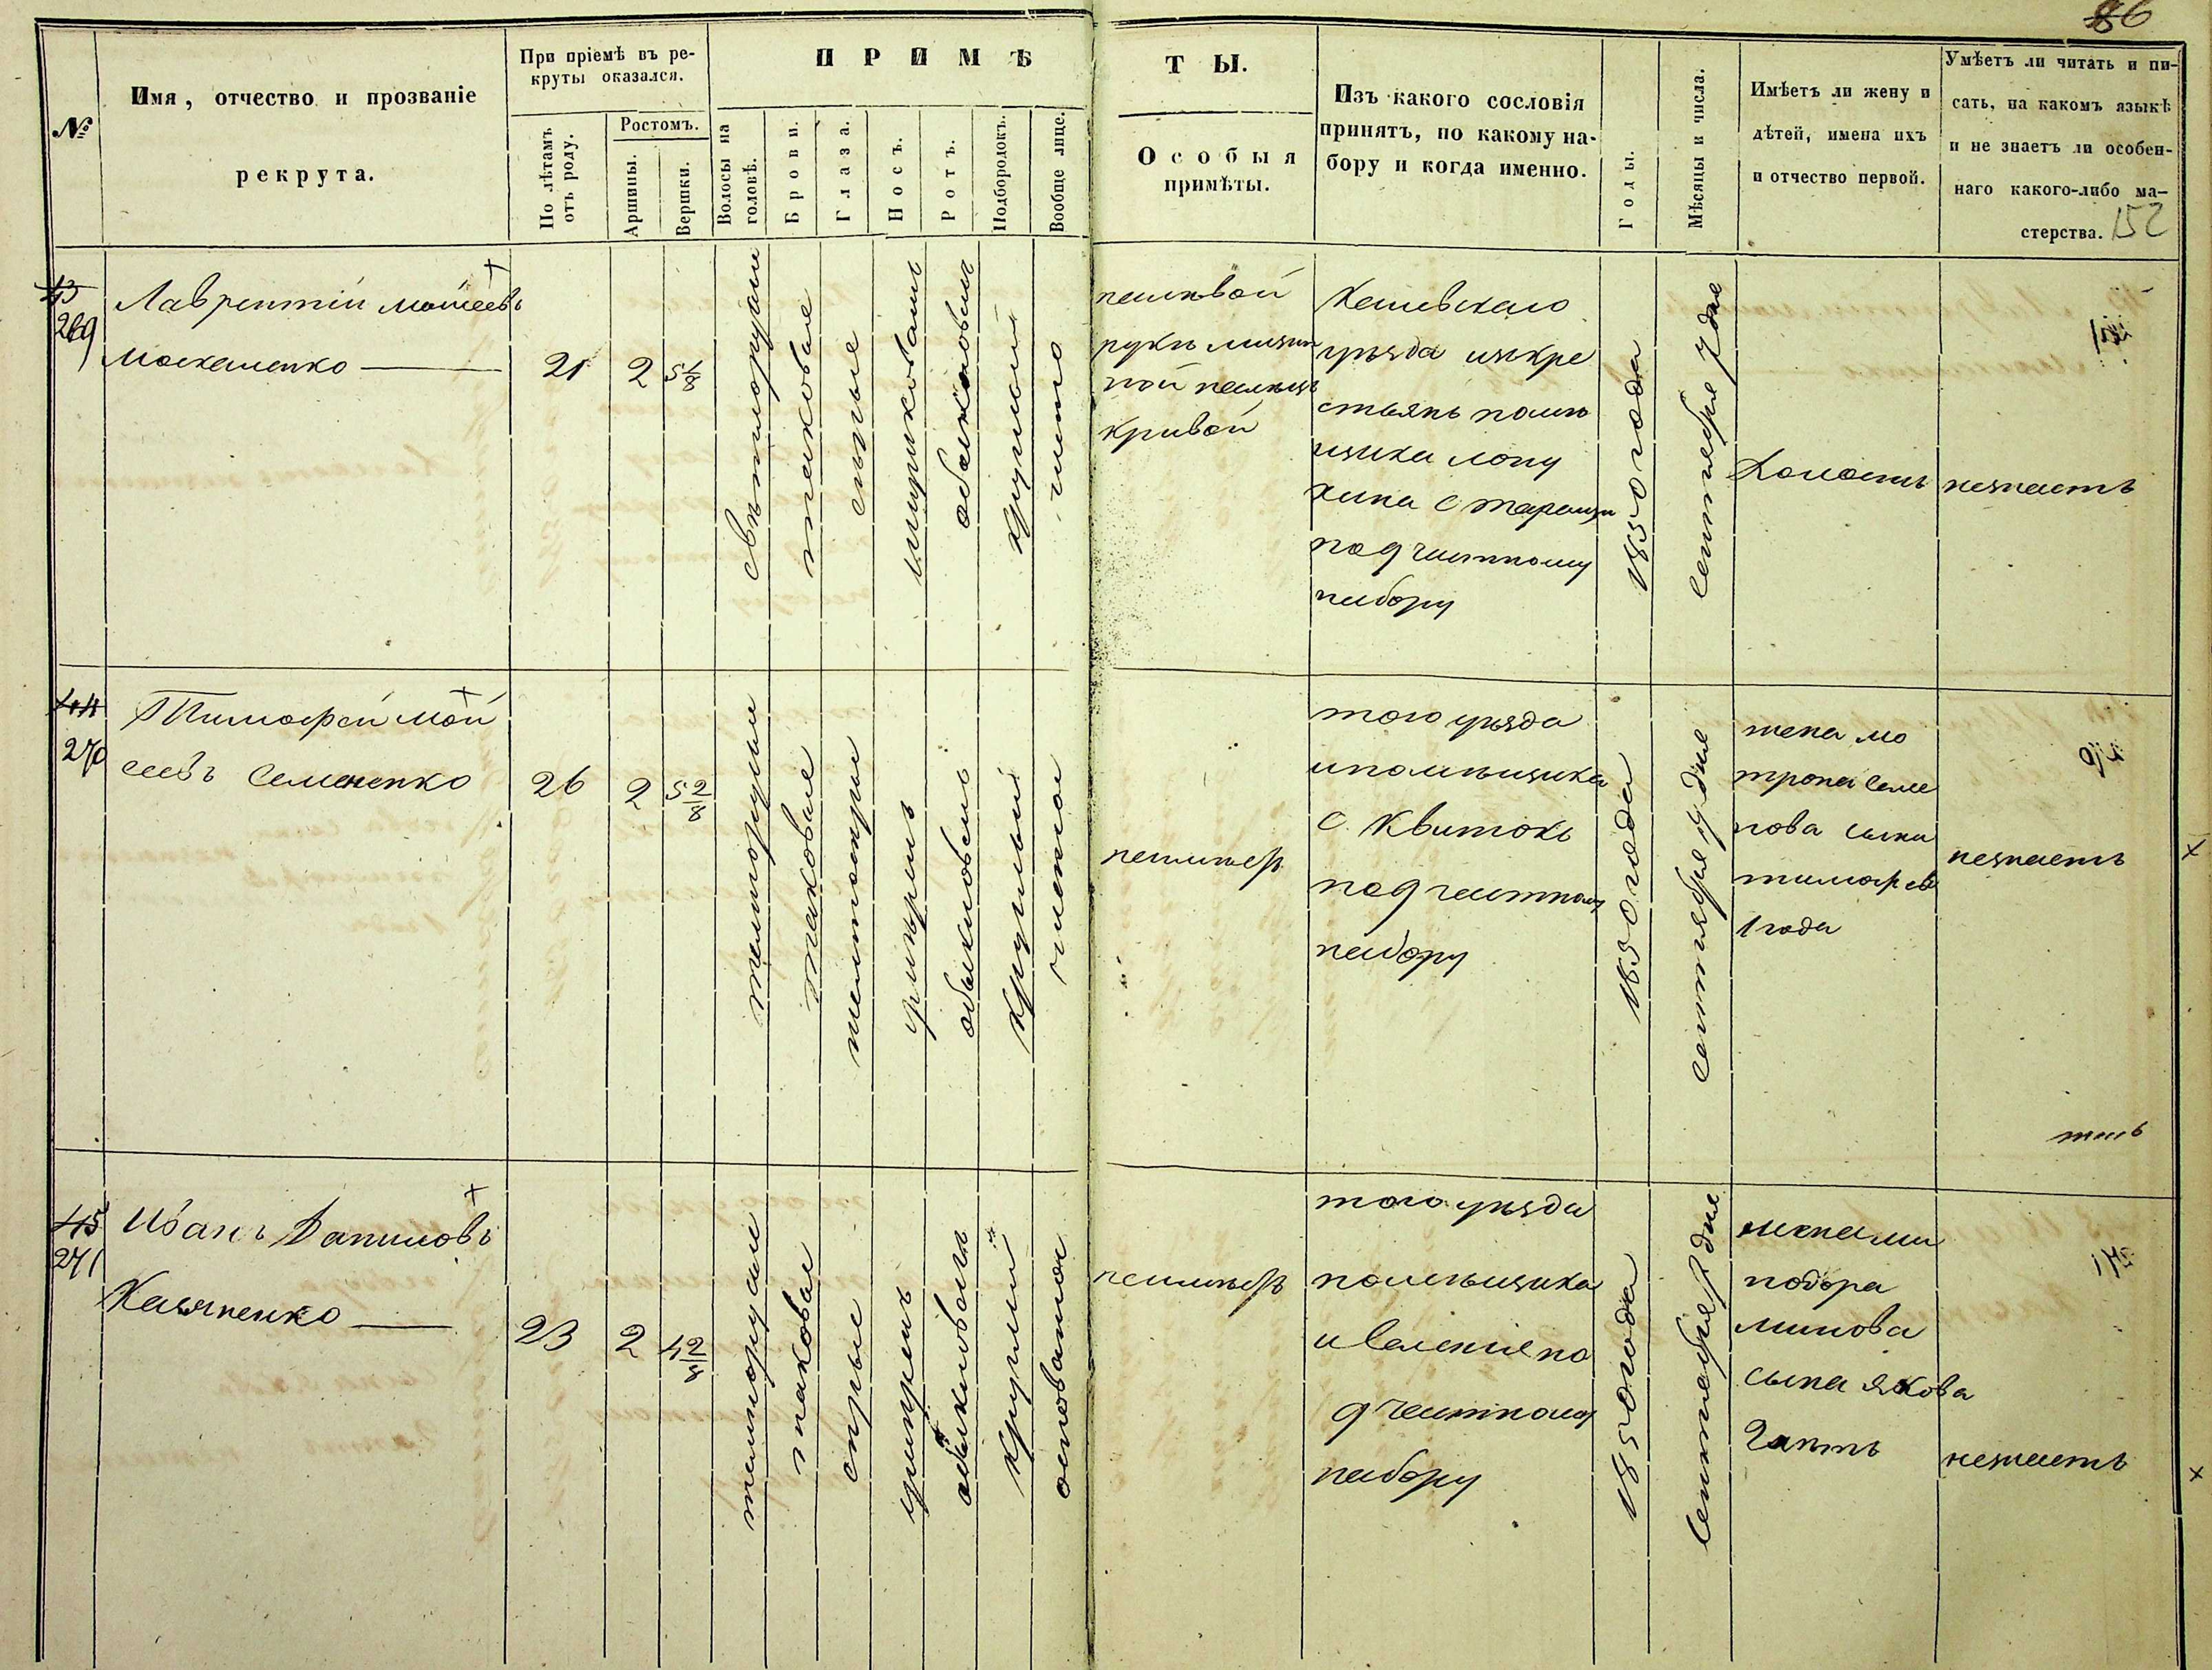 86
№
Имя, отчество и прозваніе
рекрута.
При пріемѣ въ ре-
круты оказался.
По лѣтамъ
отъ роду.
Ростомъ.
Аршины.
Вершки.
ПРИМѢ
Волосы на
головѣ.
Брови.
Глаза.
Носъ.
Ротъ.
Подбородокъ.
Вообще лице.
ТЫ.
Особыя
примѣты.
Изъ какого сословія
принятъ, по какому на-
бору и когда именно.
Годы.
Мѣсяцы и числа.
Имѣетъ ли жену и
дѣтей, имена ихъ
и отчество первой.
Умѣетъ ли читать и пи-
сать, на какомъ языкѣ
и не знаетъ ли особен-
наго какого-либо ма-
стерства. 152
43
269
Лаврентій Моисеевъ
Москаленко
21
2
5 1/8
свѣтлорусыи
таковые
сѣрые
широковатъ
обыкновенъ
круглый
чисто
налѣвой
рукѣ мизин
ной палецъ
кривой
Каневскаго
уѣзда изъ кре
стьянъ помѣ
щика Лопу
хина с Таращи
подчастному
набору
1850 года
Сентября 7 дня
Холостъ
незнаетъ
44
270
Тимофей Мой
сеевъ Семененко
26
2
5 2/8
темнорусыи
таковые
обыкновенъ
круглый
неимѣетъ
того уѣзда
и помѣщика
с. Квитокъ
подчастному
набору
1850 года
Сентября 7 дня
жена Мо
трона Семе
нова сынъ
Тимофей
1 года
незнаетъ
45
271
Иванъ Даниловъ
Касяненко
23
2
4 2/8
темнорусыи
таковыи
сѣрые
умѣренъ
обыкновенъ
круглый
осповатой
неимѣетъ
того уѣзда
помѣщика
и селенія по
дчастному
набору
1850 года
Сентября 7 дня
сына Якова
2 лѣтъ
незнаетъ